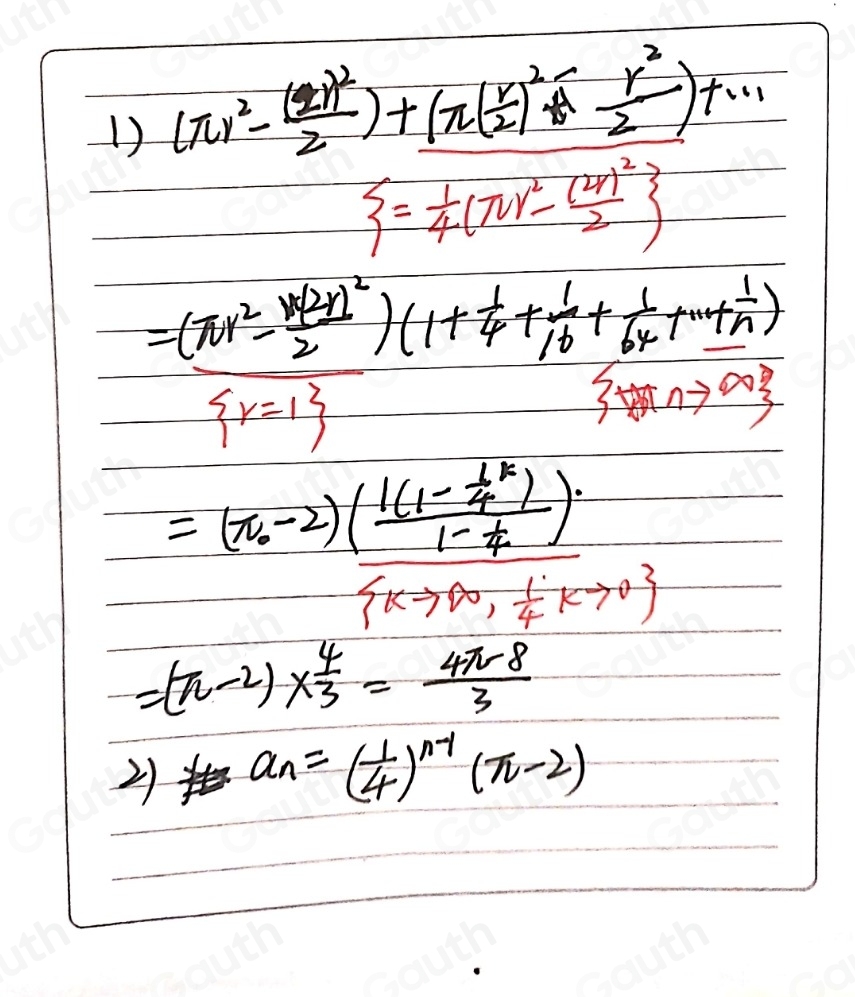 1) (πr² - (2r)²/2) + (π(r/2)² - r²/2) + ...
{= 1/4 (πr² - (2r)²/2}
= (πr² - (2r)²/2) (1 + 1/4 + 1/16 + 1/64 + ... + 1/n)
{r = 1} {n → ∞}
= (π - 2) (1(1 - 1/4^k) / (1 - 1/4)).
{k → ∞, 1/4 k → 0}
= (π - 2) × 4/3 = (4π - 8)/3
2) aₙ = (1/4)ⁿ⁻¹ (π - 2)